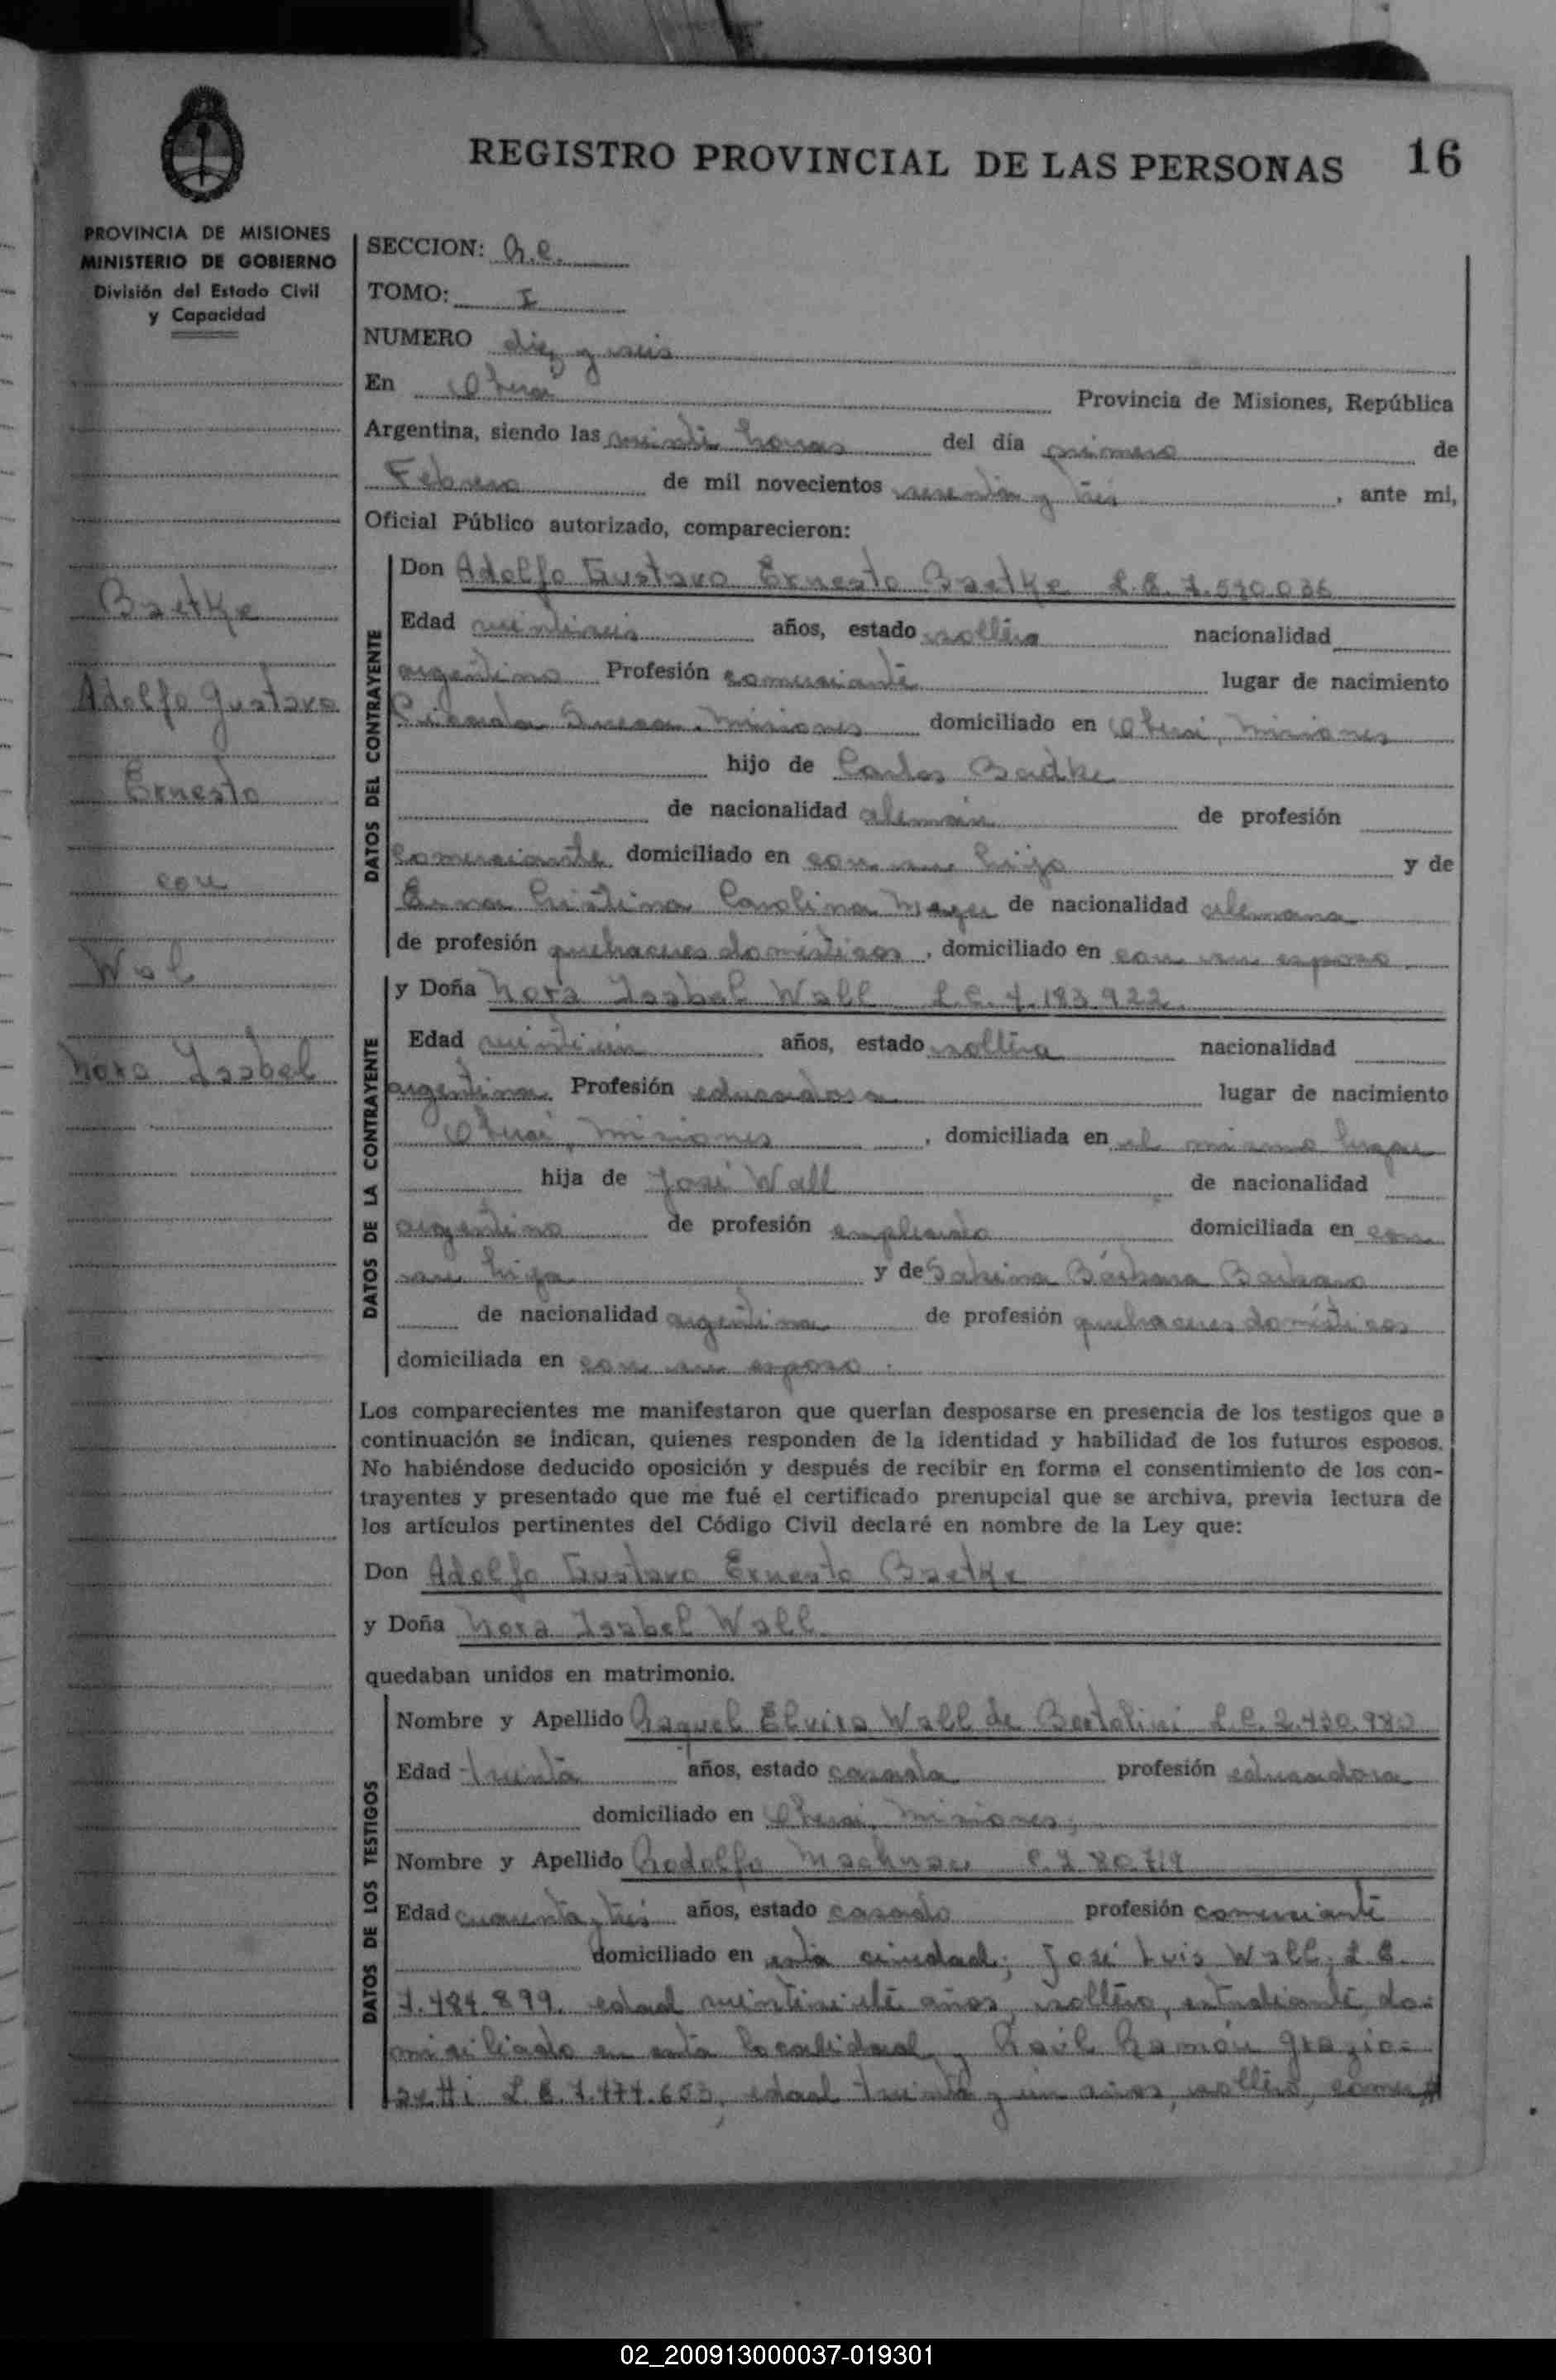 REGISTRO PROVINCIAL DE LAS PERSONAS 16
PROVINCIA DE MISIONES
MINISTERIO DE GOBIERNO
División del Estado Civil
y Capacidad
Baetke
Adolfo Gustavo
Ernesto
con
Wal
Nora Isabel
SECCION:
TOMO: I
NUMERO diez y seis
En Oberá Provincia de Misiones, República
Argentina, siendo las veinte horas del día primero de
Febrero de mil novecientos sesenta y tres, ante mi,
Oficial Público autorizado, comparecieron:
DATOS DEL CONTRAYENTE
Don Adolfo Gustavo Ernesto Baetke L.E. 7.570.036
Edad veintiseis años, estado soltero nacionalidad
argentino Profesión comerciante lugar de nacimiento
Picada Sueca, Misiones domiciliado en Oberá, Misiones
hijo de Carlos Baetke
de nacionalidad alemán de profesión
comerciante domiciliado en con su hijo y de
Cristina Carolina Meyer de nacionalidad alemana
de profesión quehaceres domésticos, domiciliado en con su esposo
DATOS DE LA CONTRAYENTE
y Doña Nora Isabel Wall L.C. 4.183.922
Edad veintiún años, estado soltera nacionalidad
argentina Profesión educadora lugar de nacimiento
Oberá, Misiones, domiciliada en el mismo lugar
hija de José Wall de nacionalidad
argentino de profesión empleado domiciliada en con
su hija y de Sabina Bárbara
de nacionalidad argentina de profesión quehaceres domésticos
domiciliada en con su esposo.
Los comparecientes me manifestaron que querían desposarse en presencia de los testigos que a
continuación se indican, quienes responden de la identidad y habilidad de los futuros esposos.
No habiéndose deducido oposición y después de recibir en forma el consentimiento de los con-
trayentes y presentado que me fué el certificado prenupcial que se archiva, previa lectura de
los artículos pertinentes del Código Civil declaré en nombre de la Ley que:
Don Adolfo Gustavo Ernesto Baetke
y Doña Nora Isabel Wall
quedaban unidos en matrimonio.
DATOS DE LOS TESTIGOS
Nombre y Apellido Raquel Elvira Wall de Bertolini L.C. 2.430.980
Edad treinta años, estado casada profesión educadora
domiciliado en Oberá, Misiones;
Nombre y Apellido Rodolfo
Edad cuarenta y tres años, estado casado profesión comerciante
domiciliado en esta ciudad; José Luis Wall, L.E.
7.484.899, edad veintisiete años, soltero, estudiante, do-
miciliado en esta localidad y Raúl Ramón Grazio-
setti L.E. 7.474.653, edad treinta y un años, soltero,
02_200913000037-019301